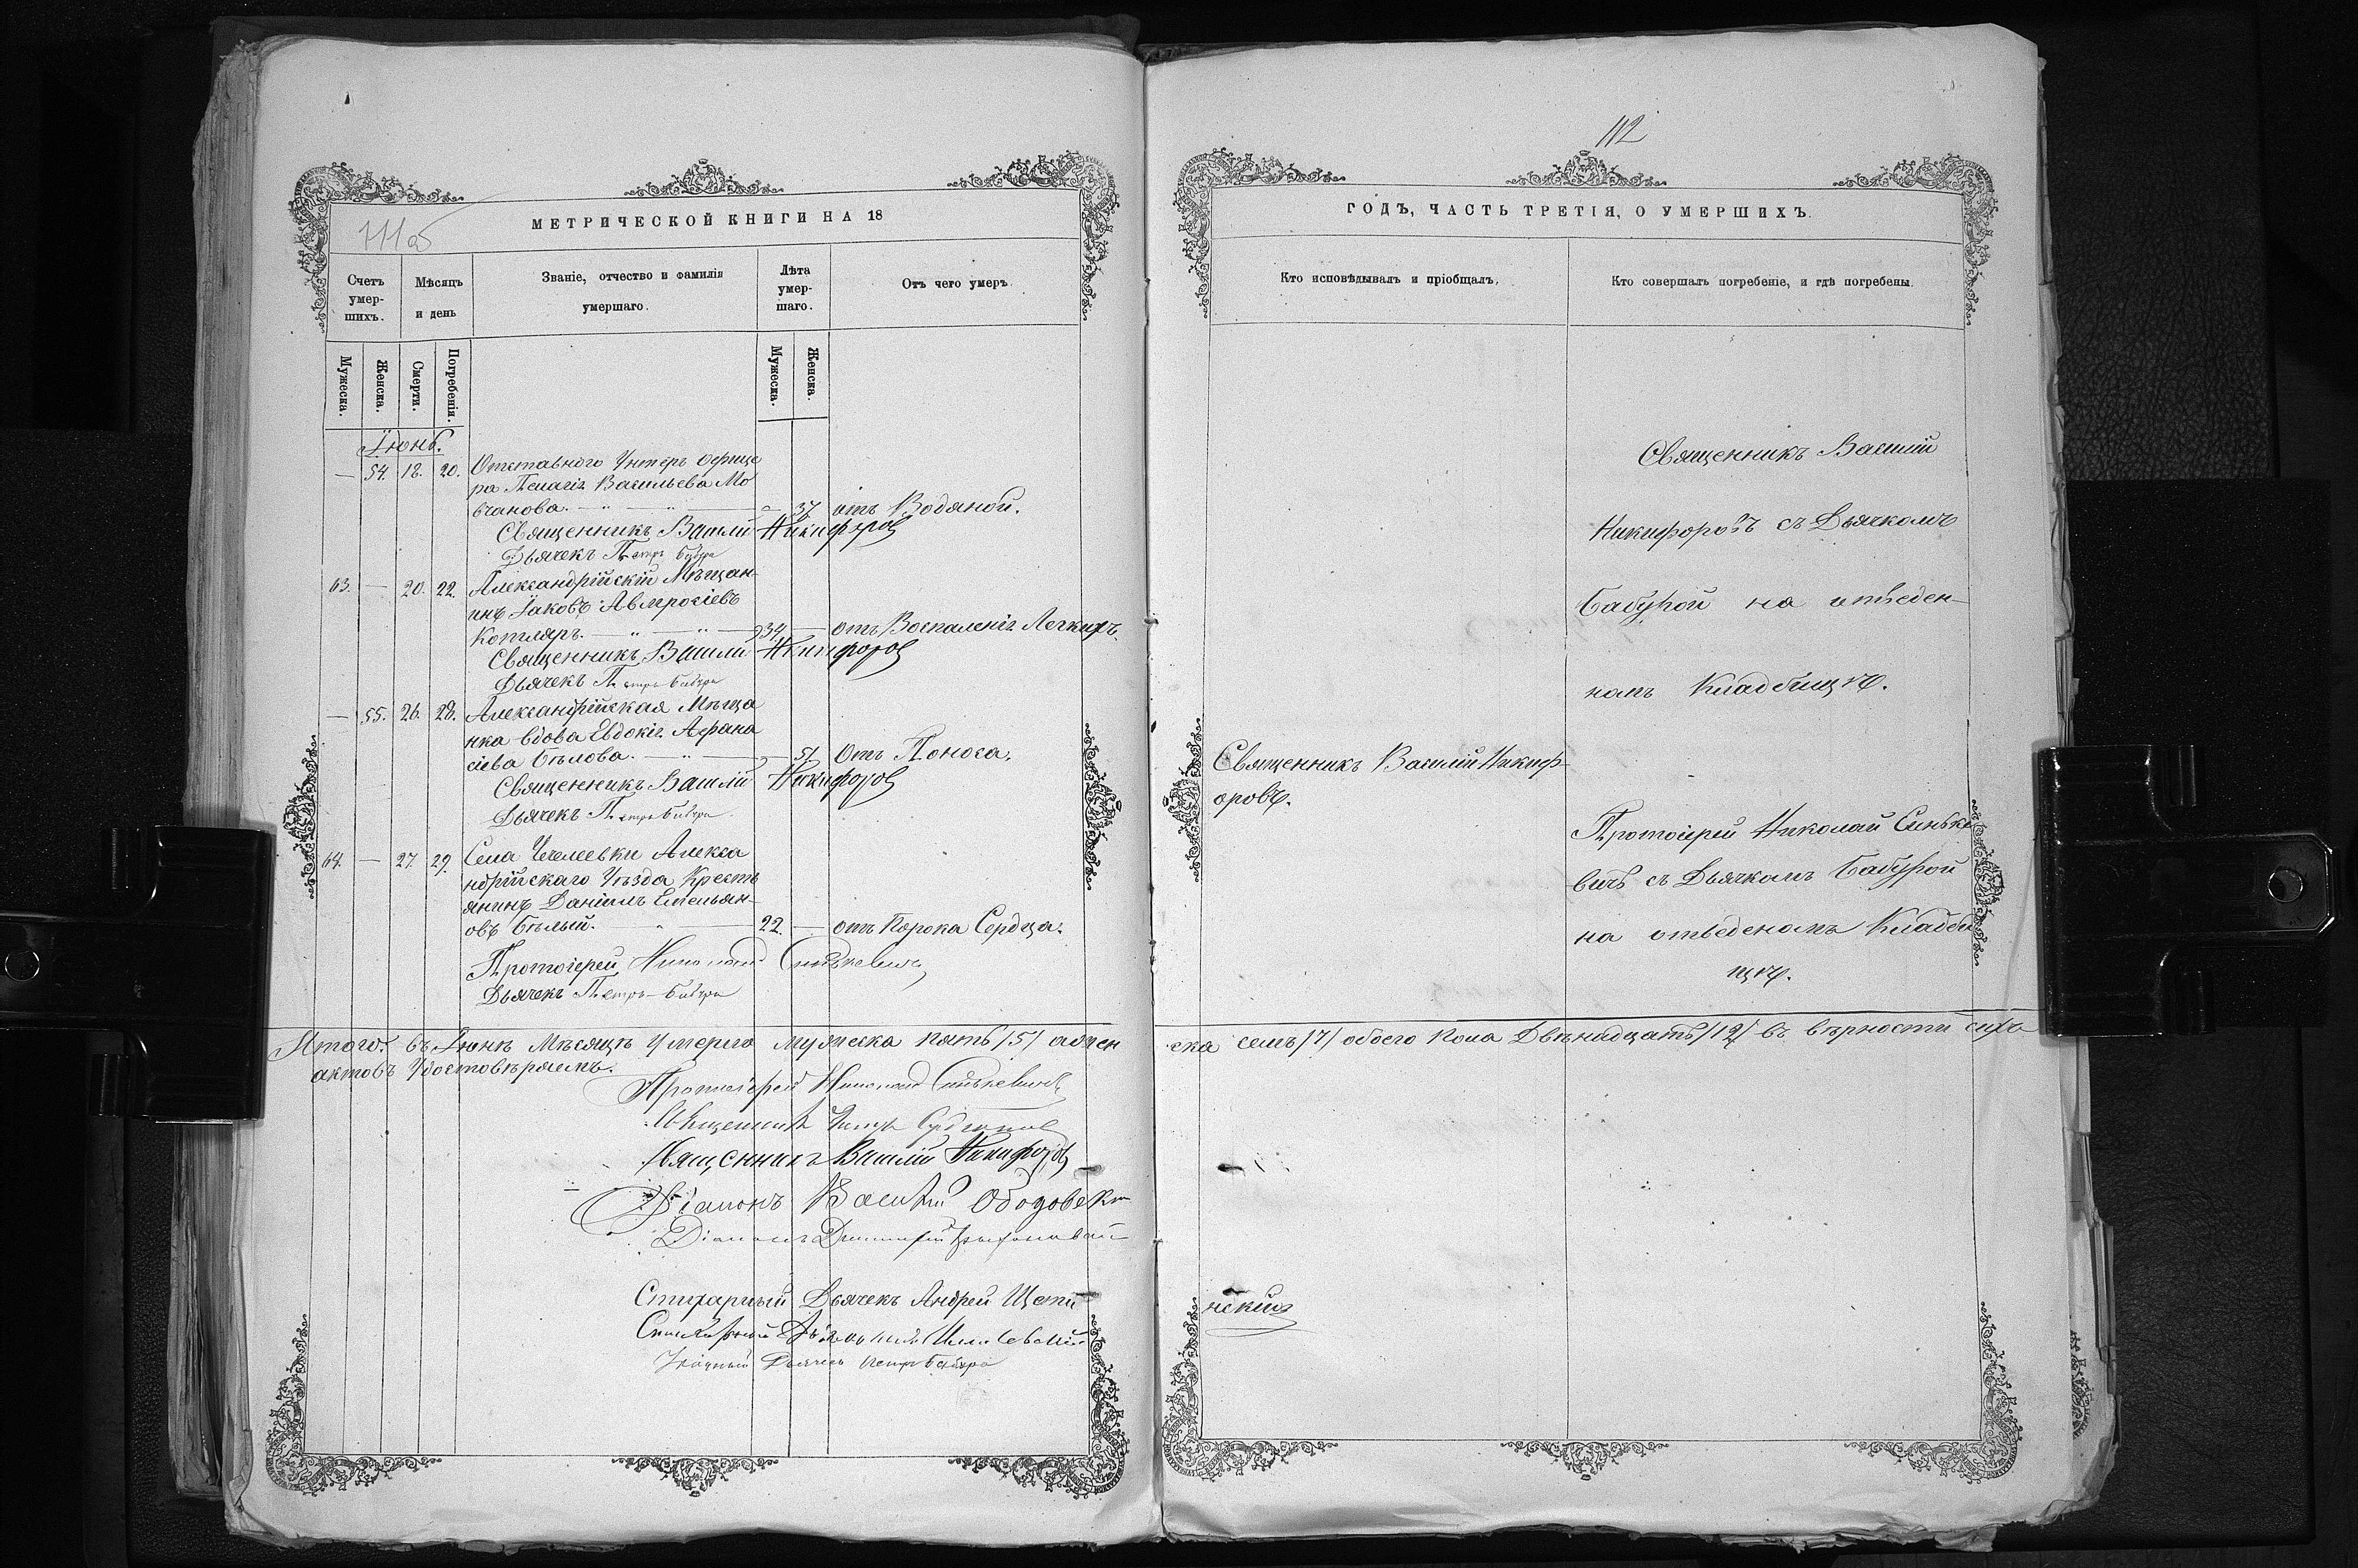 112
111об
МЕТРИЧЕСКОЙ КНИГИ НА 18
Счетъ умер-шихъ.
Мѣсяцъ и день
Званіе, отчество и фамилія умершаго.
Лѣта умер-шаго.
Отъ чего умеръ.
Мужеска.
Женска.
Смерти.
Погребенія.
Мужеска.
Женска.
Іюнь.
— 54. 18. 20. Отставного Унтеръ Офице
ра Пелагія Васильева Мо
вчанова. — " — " — 37. отъ Водяной.
Священникъ Василій Никифоровъ
Дьячекъ Петръ Бабура
63. — 20. 22. Александрійскій Мѣщан-
инъ Іаковъ Амвросіевъ
Котляръ. — " — " — 34. — отъ Воспаленія Легкихъ.
Священникъ Василій Никифоровъ
Дьячекъ Петръ Бабура
— 55. 26. 28. Александрійская Мѣща
нка вдова Евдокія Афана
сіева Бѣлова. — " — 51. Отъ Поноса.
Священникъ Василій Никифоровъ
Дьячекъ Петръ Бабура
64. — 27. 29. Села Чечелеевки Алекса
ндрійскаго Уѣзда Кресть
янинъ Даніилъ Емельян-
овъ Бѣлый. " — 22. — отъ Порока Сердца.
Протоіерей Николай Синькевичъ
Дьячекъ Петръ Бабура
Итого: въ Іюнѣ Мѣсяцѣ Умерло мужеска пять /5/ а жен
актовъ Удостовѣряемъ.
Протоіерей Николай Синькевичъ
Священникъ
Священникъ Василій Никифоровъ
Діаконъ Василій
Діаконъ Димитрій
Стихарный Дьячекъ Андрей Щепи
Стихарный
Дьячекъ Петръ Бабура
ГОДЪ, ЧАСТЬ ТРЕТІЯ, О УМЕРШИХЪ.
Кто исповѣдывалъ и пріобщалъ.
Кто совершалъ погребеніе, и гдѣ погребены.
Священникъ Василій
Никифоровъ съ Дьячкомъ
Бабурой на отведен-
номъ Кладбищѣ.
Священникъ Василій Никиф-
оровъ.
Протоіерей Николай Синьке
вичъ съ Дьячкомъ Бабурой
на отведеномъ Кладби
щѣ.
ска семь /7/ обоего пола Двѣнадцать /12/ въ вѣрности сихъ
нскій